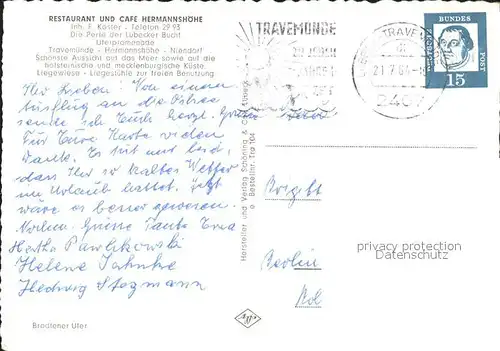 RESTAURANT UND CAFE HERMANNSHÖHE
Inh. F. Köster - Telefon 29 93
Die Perle der Lübecker Bucht
Uferpromenade
Travemünde - Hermannshöhe - Niendorf
Schönste Aussicht auf das Meer sowie auf die
holsteinische und mecklenburgische Küste.
Liegewiese - Liegestühle zur freien Benutzung
Ihr Lieben! Von einem
Ausflug an die Ostsee
sende ich Euch herzl. Grüße
Für Eure Karte vielen
Dank. Es tut mir leid,
dass Ihr so kaltes Wetter
im Urlaub hattet. Jetzt
wäre es besser gewesen.
Nochm. Grüsse Tante Erna
Hertha Pawlikowski
Helene Jahnke
Hedwig Stegmann
Brodtener Ufer
Hersteller und Verlag Schöning & Co., Lübeck
Bestellnr. Tra 104
Agfa
TRAVEMÜNDE
TRAVEMÜNDE
21.7.64
DEUTSCHE BUNDESPOST
15
Berlin
privacy protection
Datenschutz